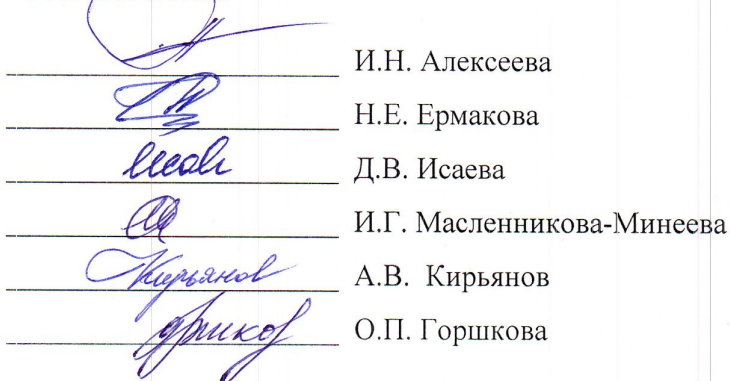 И.Н. Алексеева
Н.Е. Ермакова
Д.В. Исаева
И.Г. Масленникова-Минеева
Кирьянов А.В. Кирьянов
О.П. Горшкова